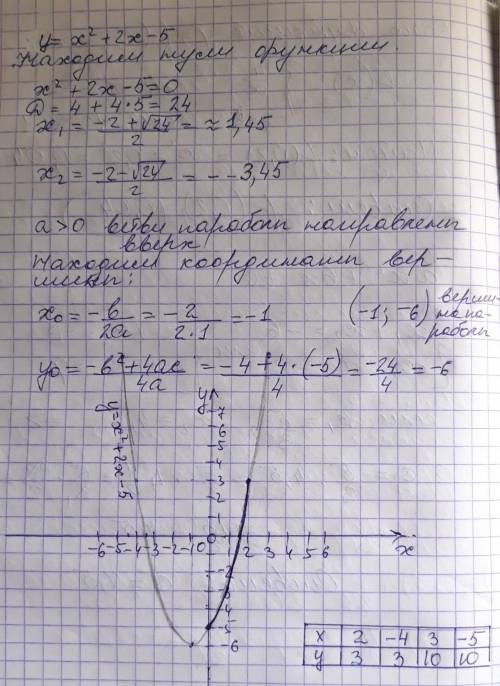 y = x² + 2x - 5
Находим нули функции.
x² + 2x - 5 = 0
D = 4 + 4·5 = 24
x₁ = (-2 + √24)/2 = ≈ 1,45
x₂ = (-2 - √24)/2 = - -3,45
a > 0 ветви параболы направлены
вверх
Находим координаты вер-
шины:
x₀ = -b/2a = -2/2·1 = -1
(-1; -6) верши-
на па-
раболы
y₀ = (-b² + 4ac)/4a = (-4 + 4·(-5))/4 = -24/4 = -6
y
y = x² + 2x - 5
7
6
5
4
3
2
1
-6 -5 -4 -3 -2 -1 0 0 2 3 4 5 6 x
-2
-3
-4
-5
-6
x 2 -4 3 -5
y 3 3 10 10